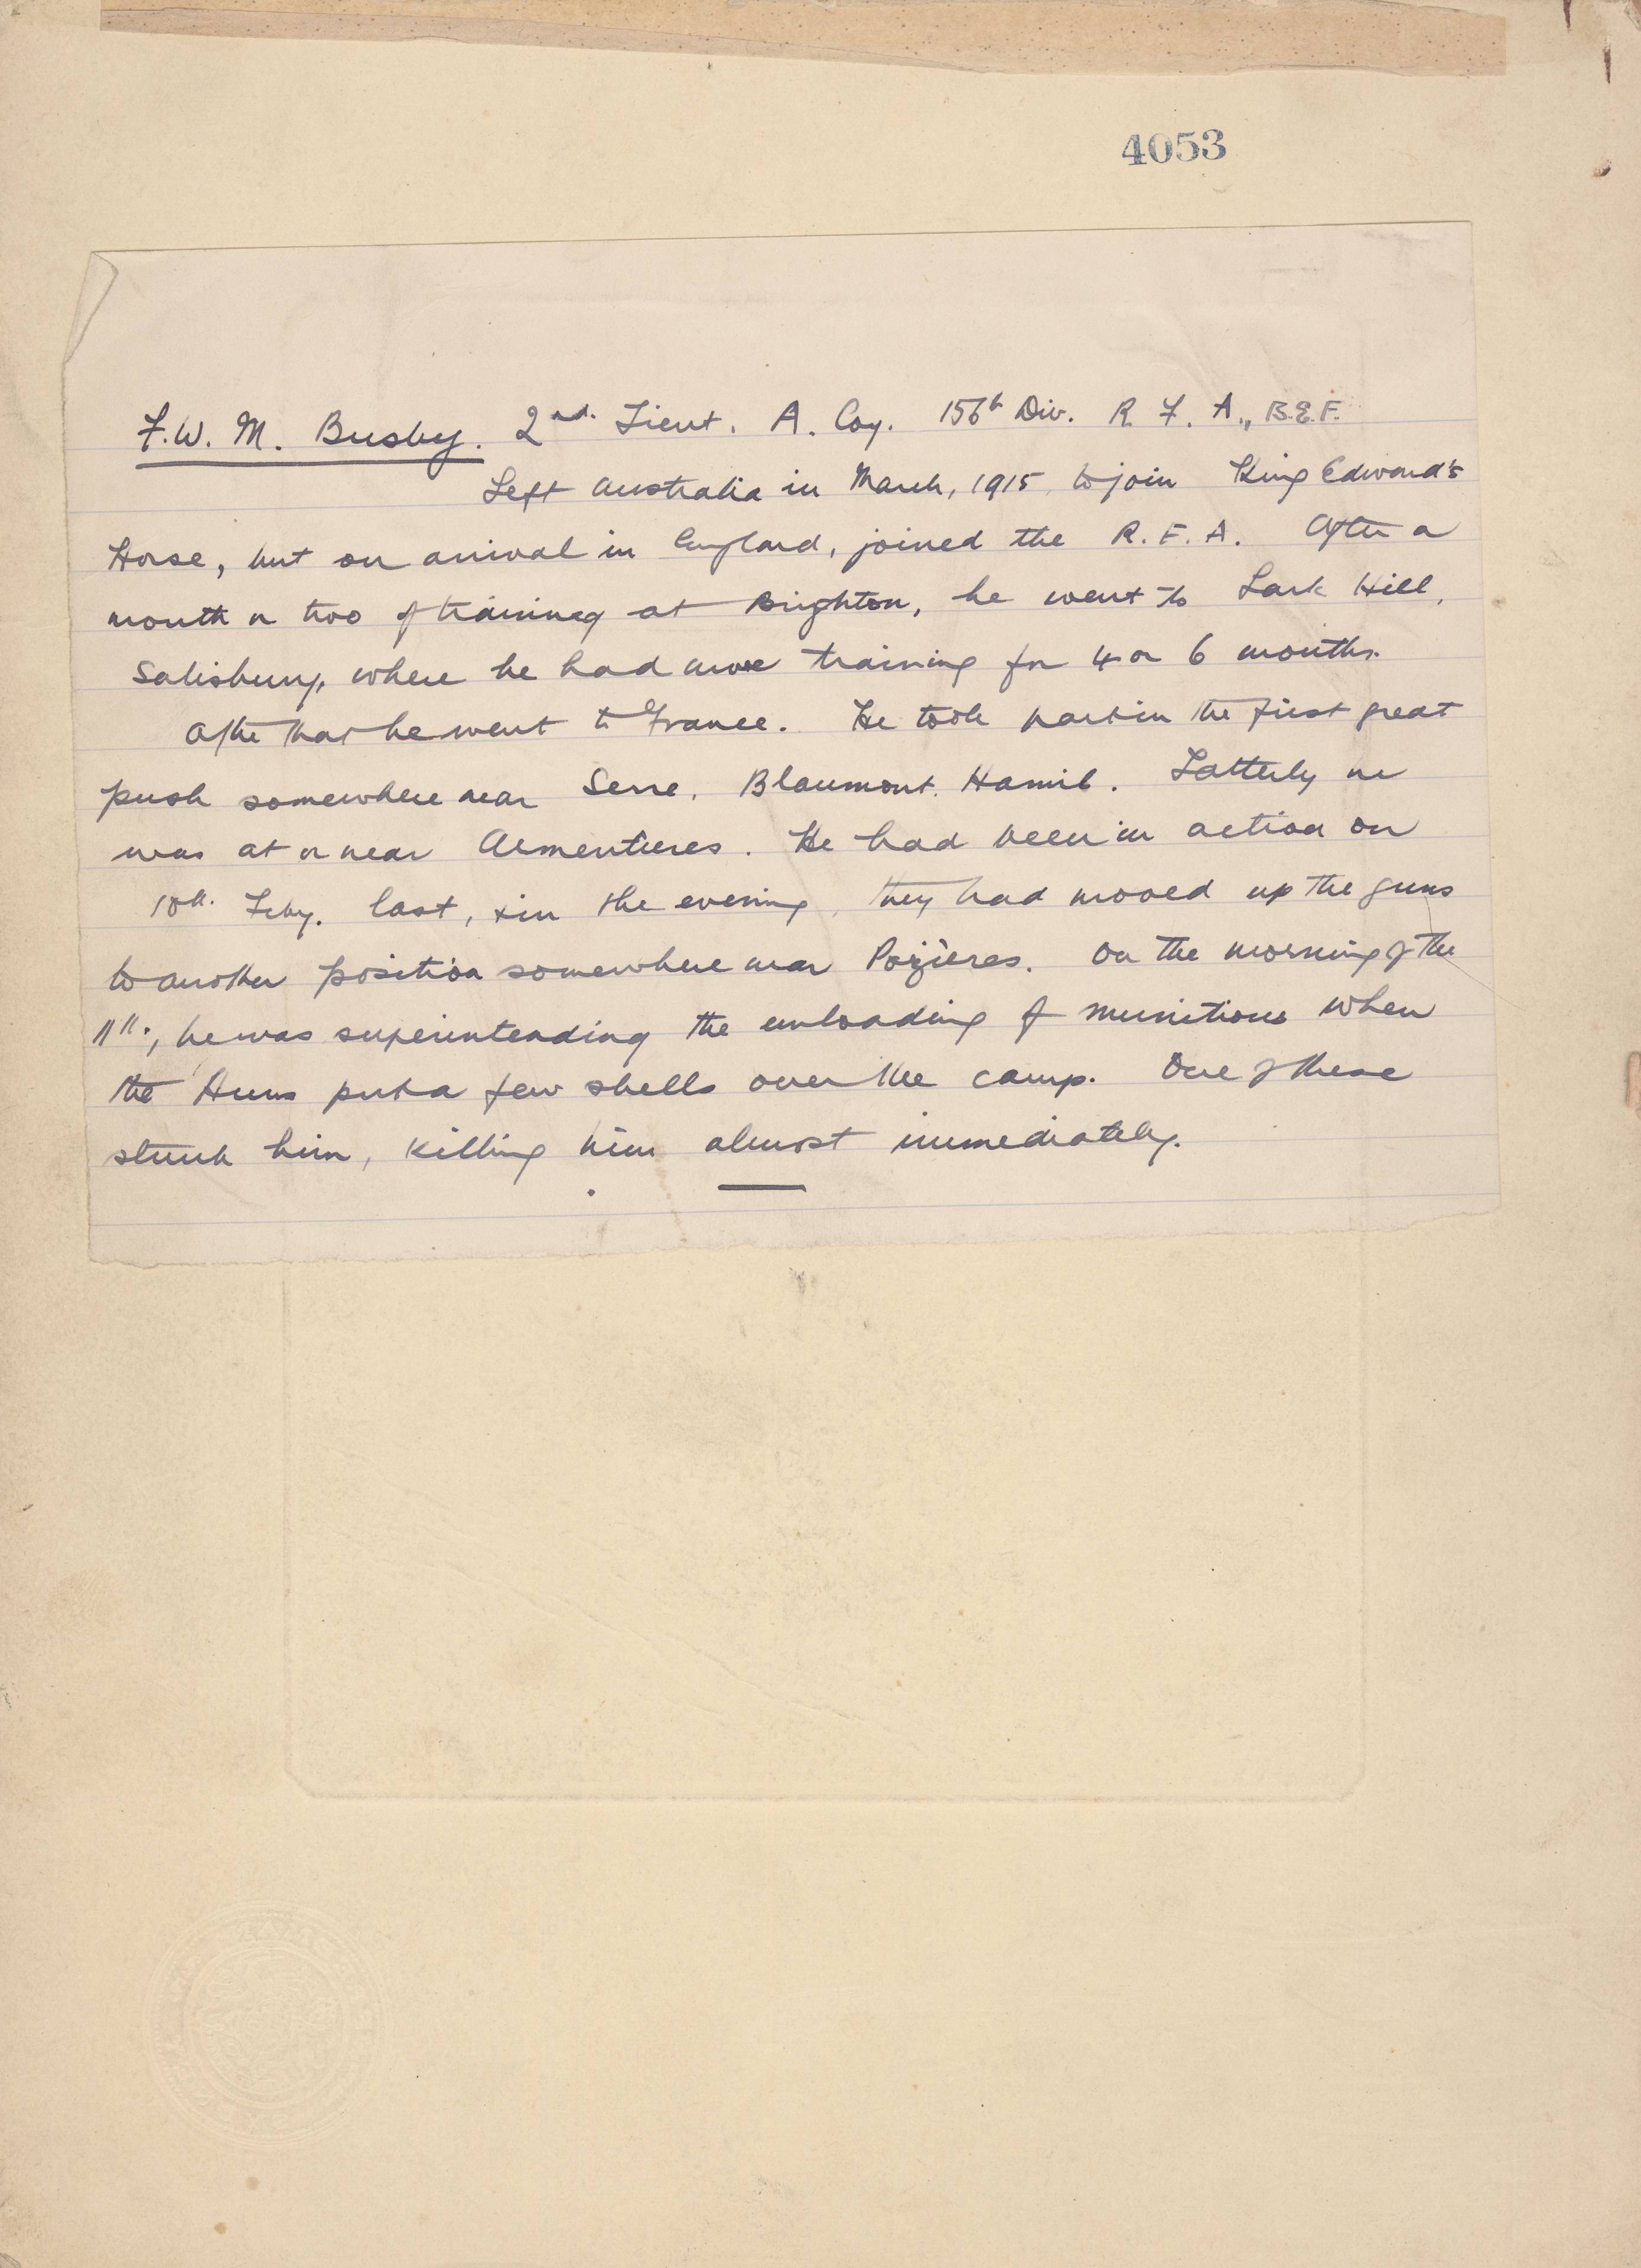 4053
F.W. M. Busby. 2nd. Lieut. A. Coy. 156th Div. R. F. A., B.E.F.
Left Australia in March, 1915, to join King Edward's
Horse, but on arrival in England, joined the R. F. A. After a
month or two of training at Brighton, he went to Lark Hill,
Salisbury, where he had more training for 4 or 6 months.
After that he went to France. He took part in the first great
push somewhere near Serre, Blaumont. Hamil. Latterly he
was at or near Armentieres. He had been in action on
10th. Feby. last, & in the evening, they had moved up the guns
to another position somewhere near Pozières. On the morning of the
11th., he was superintending the unloading of munitions when
the Huns put a few shells over the camp. One of these
struck him, killing him almost immediately.